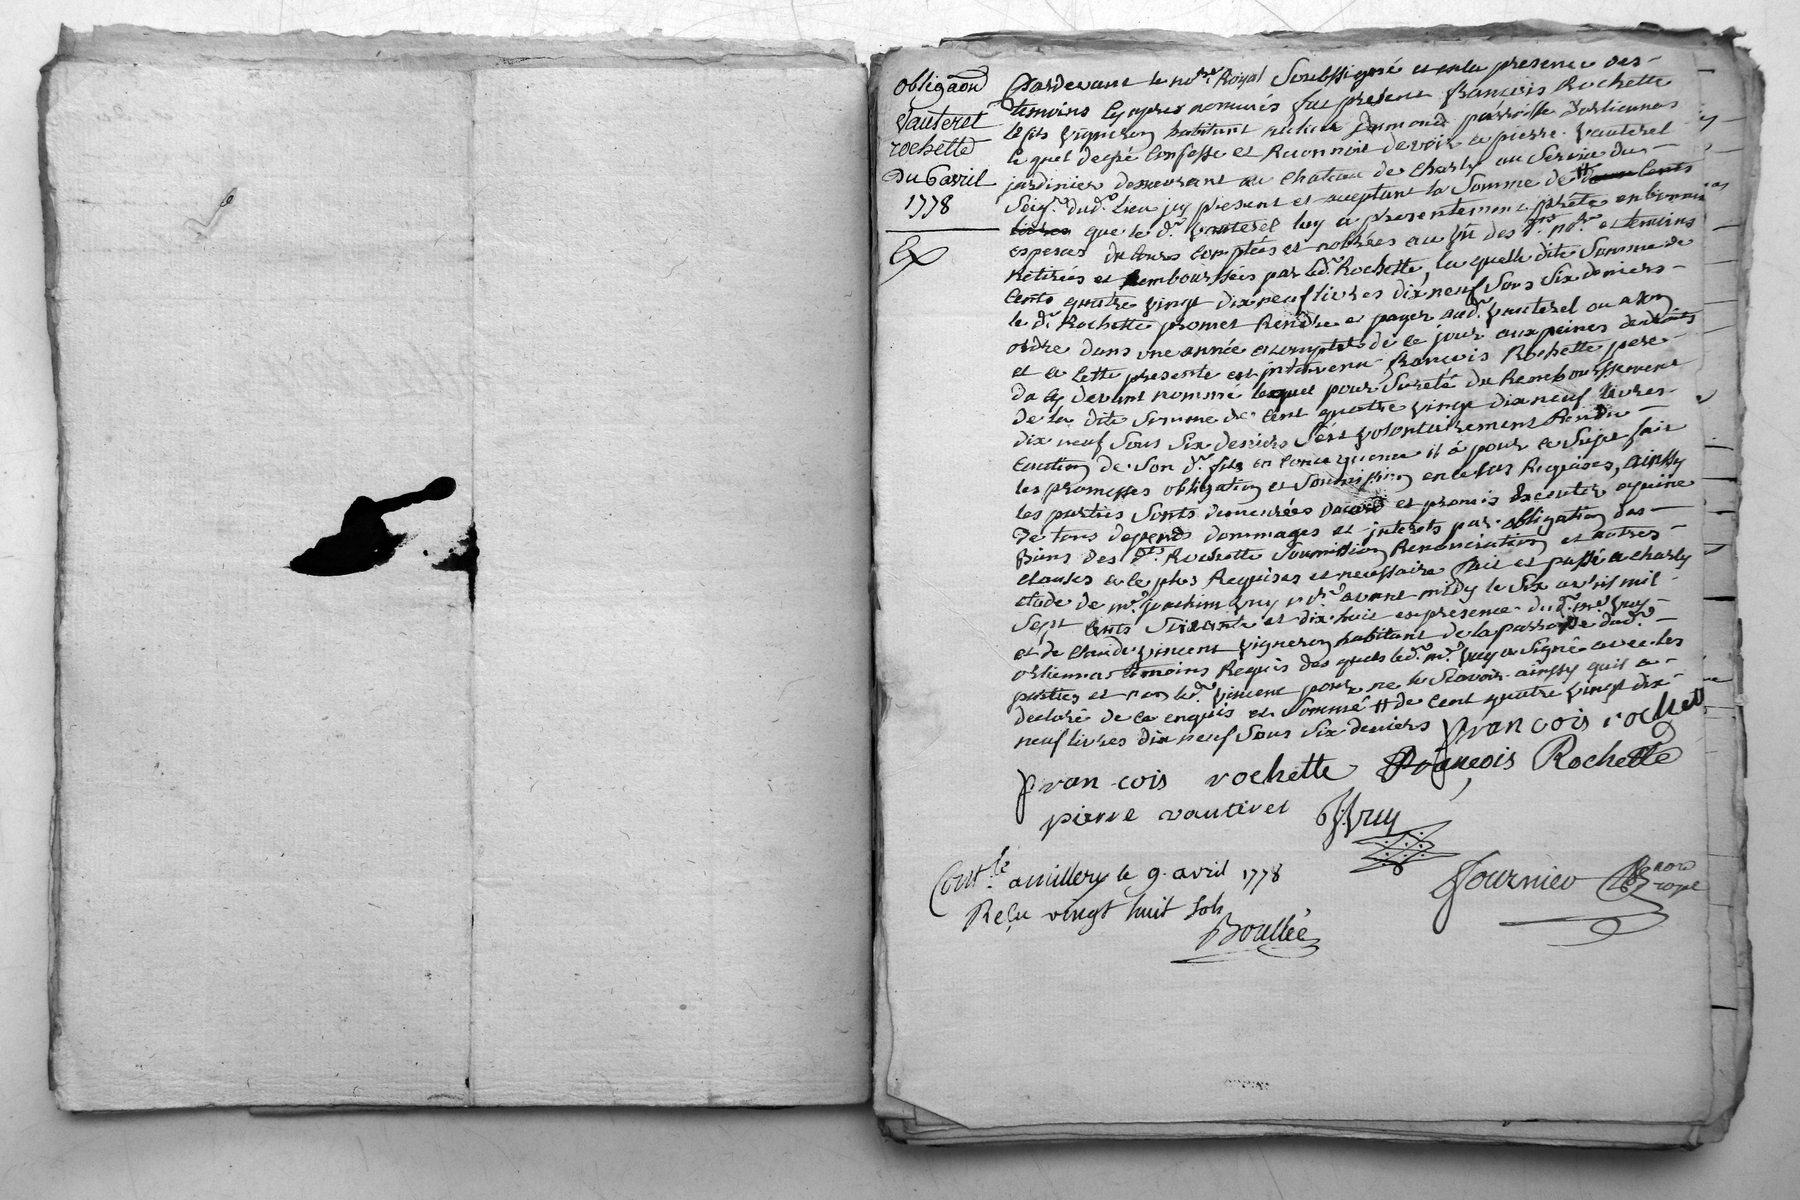 obligaon
Vauterel
rochette
Du 6 avril
1778
Ex
Pardevant le no.re Royal Soubssigné et en la presence des
temoins cy apres nommés fut present françois Rochette
le fils vigneron habitant au lieu parroisse d'orliennas
le quel degré Confesse et Reconnoit devoir a pierre Vauterel
jardinier demeurant au Chateau de Charly au Service du
Seig.r dud.t lieu jcy present et aceptant la Somme de # Cents
livres que le d.t Vauterel luy a presentement preté en bonnes
especes de Cours comptées et nobrées au vû des d.ts no.re et temoins
Retirées et Rembourssées par led.t Rochette, la quelle dite Somme de
Cents quatre vingt dix neuf livres dix neuf Sous Six deniers
le d.t Rochette promet Rendre et payer aud.t Vauterel ou a son
ordre dans une année a compter de ce jour aux peines de droits
et a Cette presente est intervenu françois Rochette pere
du cy devant nommé lequel pour Sureté du Remboursement
de la dite Somme de Cent quatre vingt dix neuf livres
dix neuf Sous Six deniers S'est volontairement Rendu
Caution de Son d.t fils en Consequence il à pour ce Sujet fait
les promesses obligation et Soumission en ce cas Requises, ainssy
les parties Sonts demeurées d'acord et promis executer a peine
De tous depends dommages et interets par obligation des
Biens des d.ts Rochette Soumission Renonciation et autres
Clauses a ce plus Requises et necessaire fait et passé a Charly
etude de m.e Joachim avant midy le Six avril mil
Sept Cents Soixante et dix huit en presence dud.t m.e
et de Claude Vincent vigneron habitant de la parroisse dud.t
orliennas temoins Requis des quels led.t m.e a Signé avec les
parties et non led.t Vincent pour ne le Scavoir ainssy quil a
declaré de ce enquis et Sommé # de Cent quatre vingt dix
neuf livres dix neuf Sous Six deniers françois rochett
fran cois rochette François Rochette
pierre vauterel
Cont.lé a millery le 9. avril 1778
Reçu vingt huit sols
Boullée
Fournier